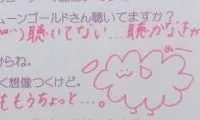 ムーンゴールドさん聴いてますか?
聴いてない…聴かなきゃ
けらね。
く想像つくけど。
ももうちょっと…。